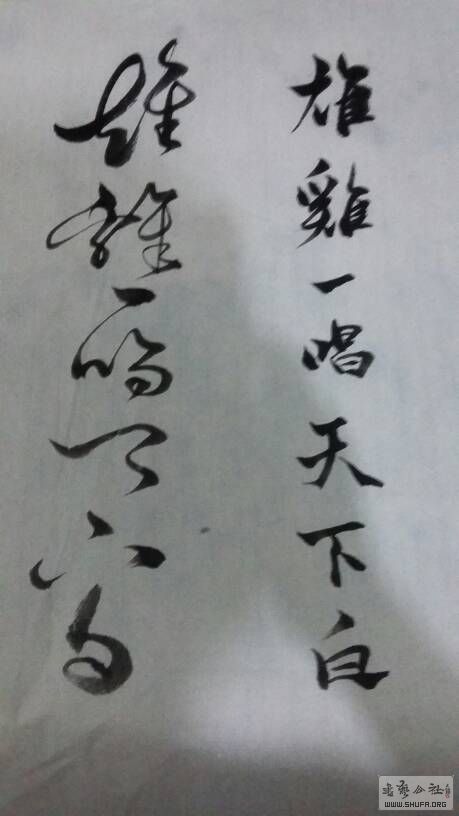 雄雞一唱天下白
雄雞一唱天下白
書藝公社
WWW.SHUFA.ORG